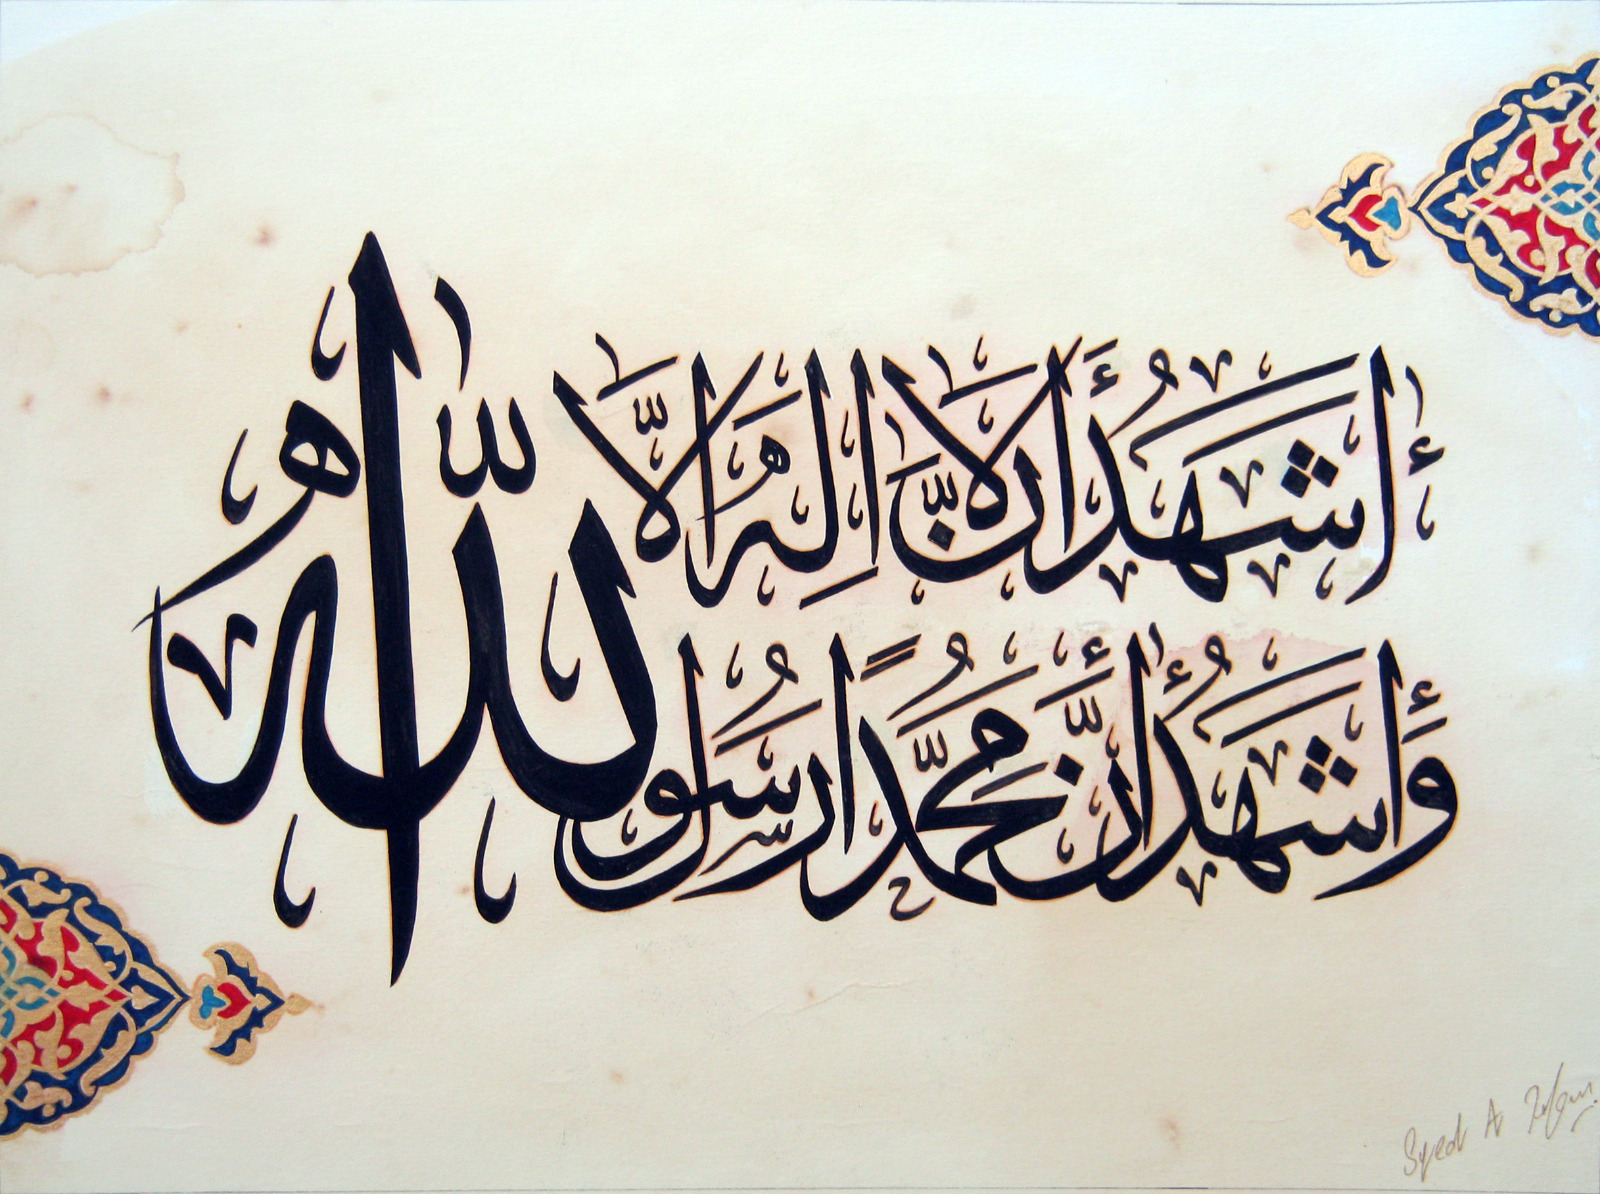 أَشْهَدُ أَنْ لَا إِلٰهَ إِلَّا اللّٰه
وَأَشْهَدُ أَنَّ مُحَمَّدًا رَسُولُ اللّٰه
Syed A